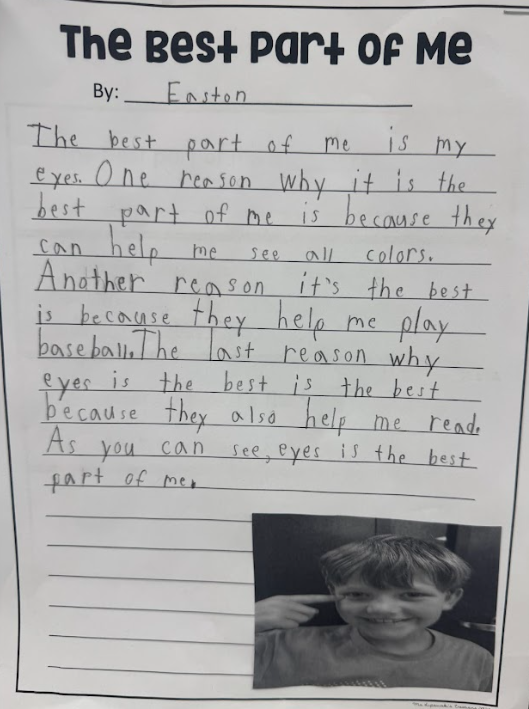 The Best Part Of Me
By: Easton
The best part of me is my
eyes. One reason why it is the
best part of me is because they
can help me see all colors.
Another reason it's the best
is because they help me play
baseball. The last reason why
eyes is the best is the best
because they also help me read.
As you can see, eyes is the best
part of me.